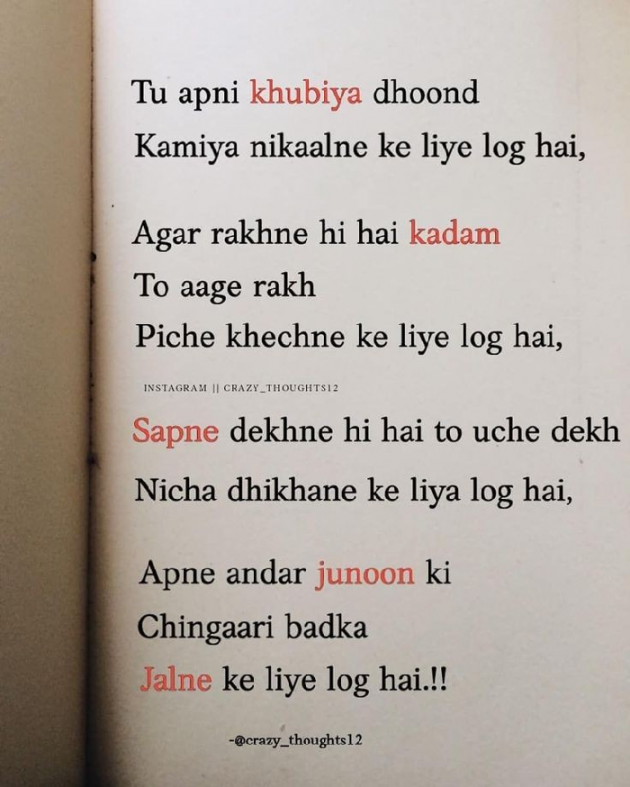 Tu apni khubiya dhoond
Kamiya nikaalne ke liye log hai,
Agar rakhne hi hai kadam
To aage rakh
Piche khechne ke liye log hai,
INSTAGRAM || CRAZY_THOUGHTS12
Sapne dekhne hi hai to uche dekh
Nicha dhikhane ke liya log hai,
Apne andar junoon ki
Chingaari badka
Jalne ke liye log hai.!!
-@crazy_thoughts12